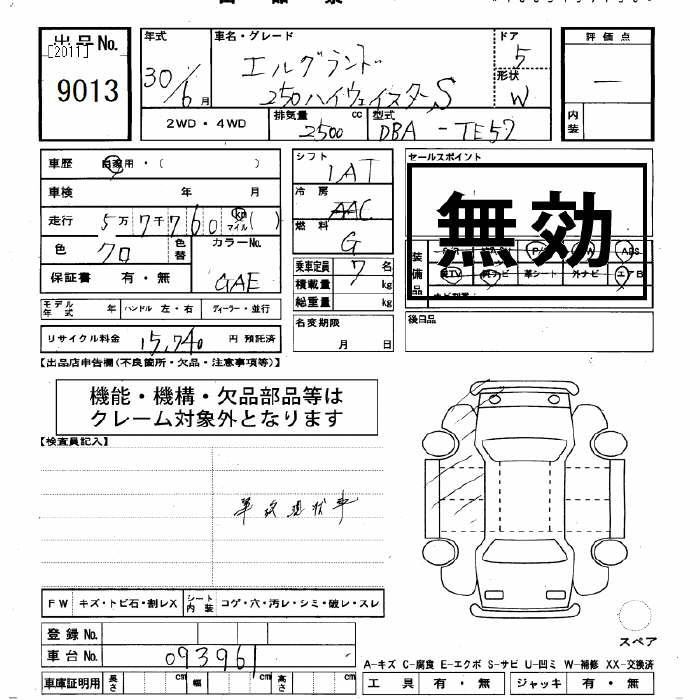 出品No.
[2011]
9013
年式
30/6月
車名・グレード
エルグランド
250ハイウェイスターS
ドア
5
形状
W
2WD・4WD
排気量
2500 cc
型式
DBA-TE52
評価点
内装
車歴 自家用・( )
車検 年 月
走行 5万7千760 km マイル ( )
色 クロ
色替
カラーNo.
GAE
保証書 有・無
モデル年式 年 ハンドル 左・右 ディーラー・並行
リサイクル料金 15,740 円 預託済
シフト
IAT
冷房
AAC
燃料
G
乗車定員 7 名
積載量 kg
総重量 kg
名変期限
月 日
セールスポイント
無効
装備品
ABS
革シート 外ナビ エアB
後日品
【出品店申告欄(不良箇所・欠品・注意事項等)】
機能・機構・欠品部品等は
クレーム対象外となります
【検査員記入】
事故現状車
FW キズ・トビ石・割レX
シート内装 コゲ・穴・汚レ・シミ・破レ・スレ
登録No.
車台No. 093961
車庫証明用 長さ cm 幅 cm 高さ cm
スペア
A-キズ C-腐食 E-エクボ S-サビ U-凹ミ W-補修 XX-交換済
工具 有・無 ジャッキ 有・無